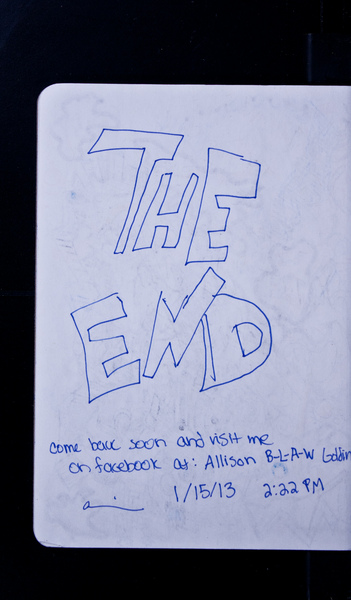 THE
END
come back soon and visit me
on facebook at: Allison B-L-A-W
1/15/13 2:22 PM